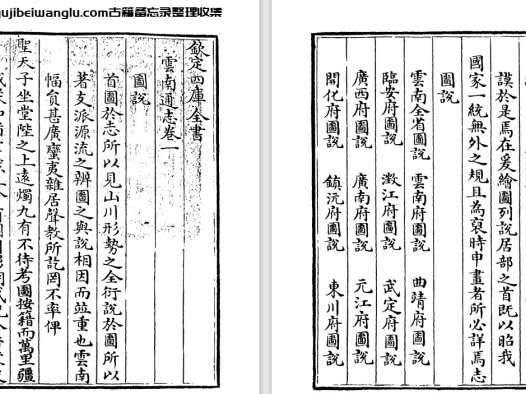 ujibeiwanglu.com古籍备忘录整理收集
欽定四庫全書
雲南通志卷一
圖說
首圖於志所以見山川形勢之全衍說於圖所以
著支派源流之辨圖之與說相因而竝重也雲南
幅負甚廣蠻夷雜居聲教所訖罔不率俾
聖天子坐堂陛之上遠燭九有不待考圖按籍而萬里疆
謹於是焉在爰繪圖列說居部之首既以昭我
國家一統無外之規且為裒時申畫者所必詳焉志
圖說
雲南全省圖說 雲南府圖說 曲靖府圖說
臨安府圖說 澂江府圖說 武定府圖說
廣西府圖說 廣南府圖說 元江府圖說
開化府圖說 鎮沅府圖說 東川府圖說